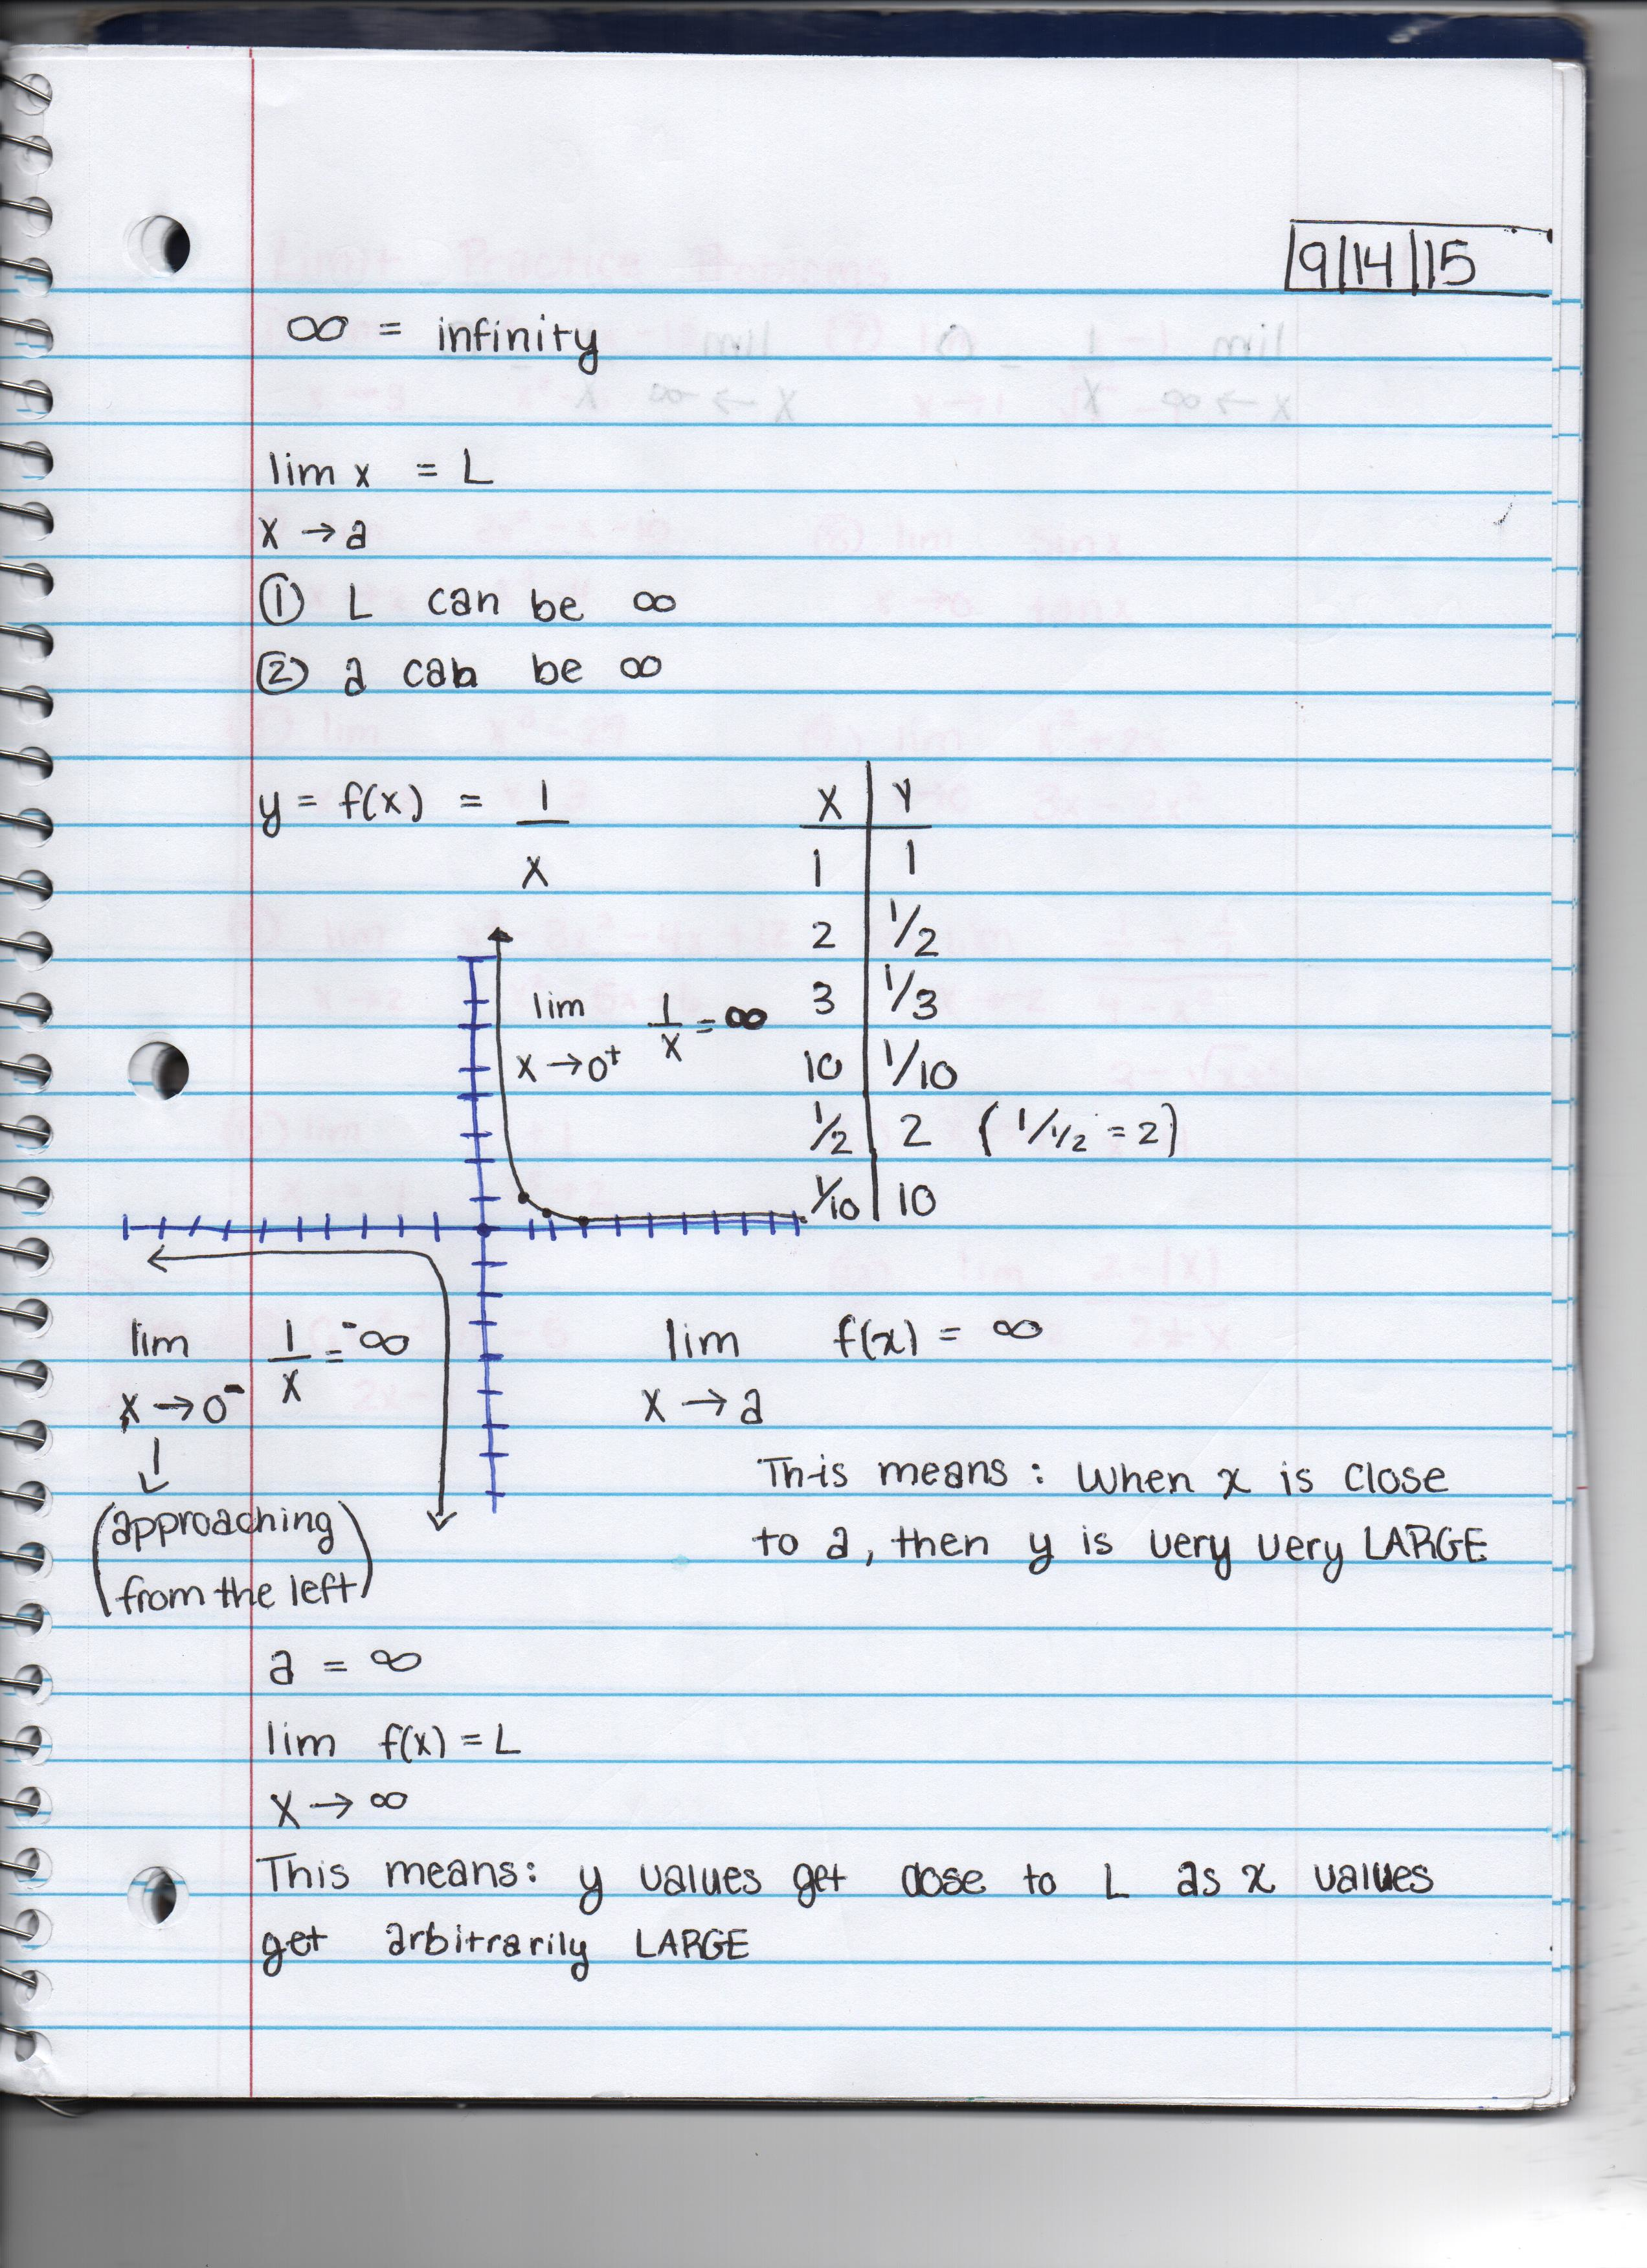 9/14/15
∞ = infinity
lim x = L
x → a
① L can be ∞
② a can be ∞
y = f(x) = 1
x
X | Y
1 | 1
2 | 1/2
3 | 1/3
10 | 1/10
1/2 | 2 ( 1/1/2 = 2)
1/10 | 10
lim 1/x = ∞
x → 0⁺
lim 1/x = -∞
x → 0⁻
↓
(approaching
from the left)
lim f(x) = ∞
x → a
This means: when x is close
to a, then y is very very LARGE
a = ∞
lim f(x) = L
x → ∞
This means: y values get close to L as x values
get arbitrarily LARGE